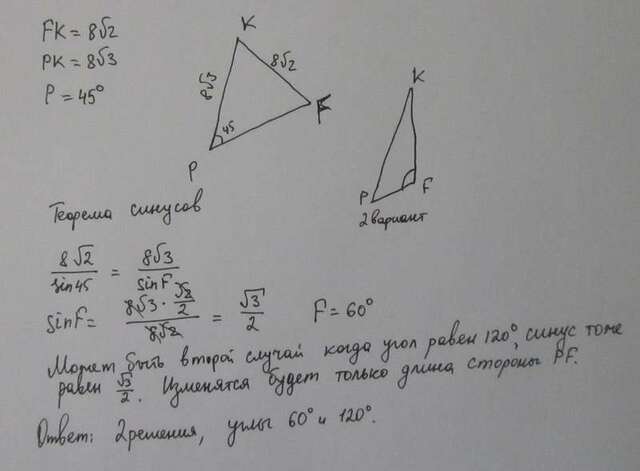 FK = 8√2
PK = 8√3
P = 45°
K
8√3
8√2
45
F
P
K
P
F
2 вариант
Теорема синусов
8√2/sin45 = 8√3/sinF
sinF = (8√3 · √2/2)/(8√2) = √3/2 F = 60°
Может быть второй случай когда угол равен 120°, синус тоже
равен √3/2. Изменятся будет только длина стороны PF.
Ответ: 2 решения, углы 60° и 120°.